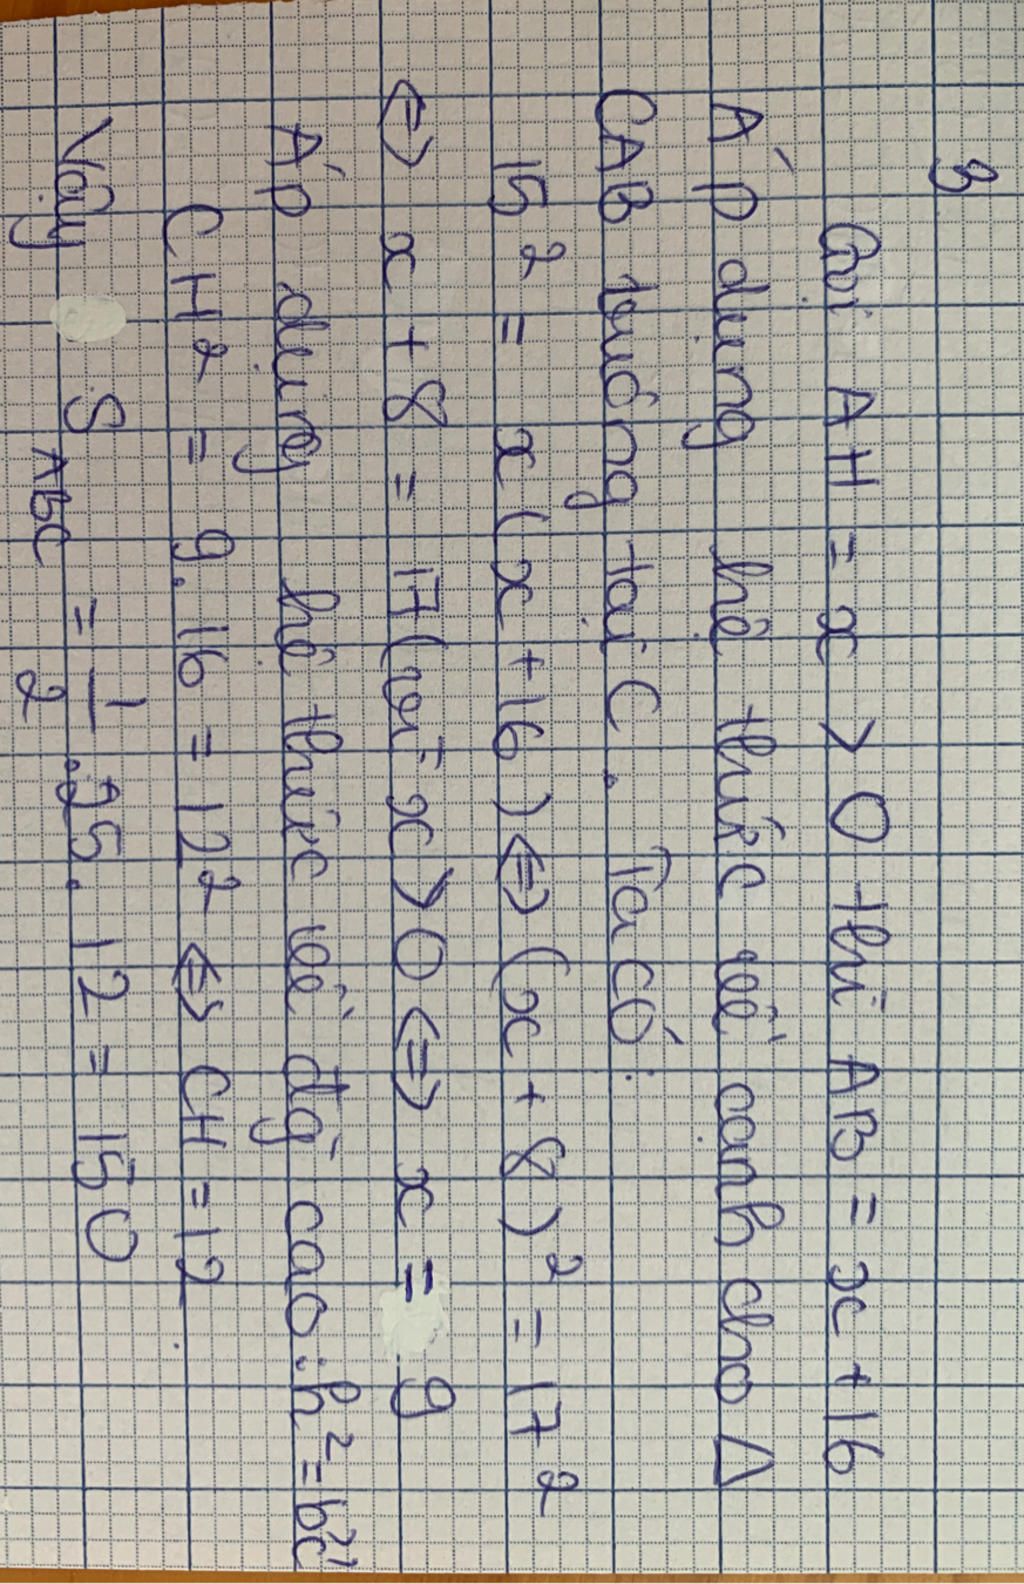 3
Gọi AH = x > 0 thì AB = x + 16
Áp dụng hệ thức về cạnh cho Δ
CAB vuông tại C. Ta có:
15² = x(x+16) ⇔ (x + 8)² = 17²
⇔ x + 8 = 17 (với x > 0 ⇔ x = 9
Áp dụng hệ thức về đg cao: h² = b'c'
CH² = 9.16 = 12² ⇔ CH = 12.
Vậy S ABC = 1/2 . 25. 12 = 150